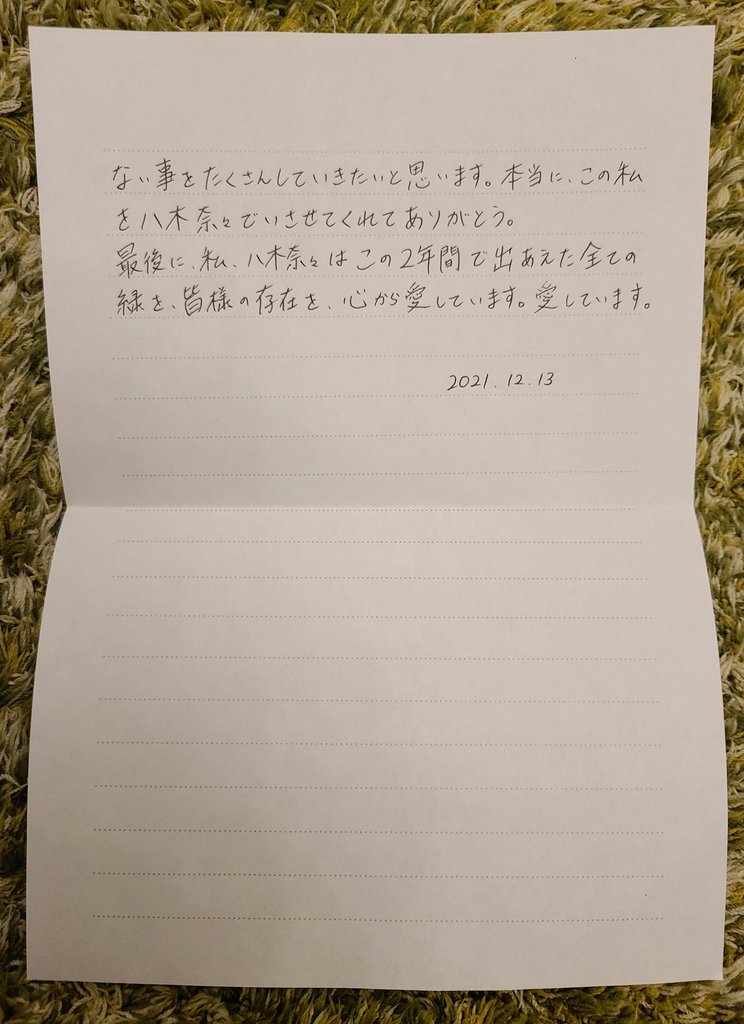 ない事をたくさんしていきたいと思います。本当に、この私
を八木奈々でいさせてくれてありがとう。
最後に、私、八木奈々はこの2年間で出あえた全ての
縁を、皆様の存在を、心から愛しています。愛しています。
2021.12.13